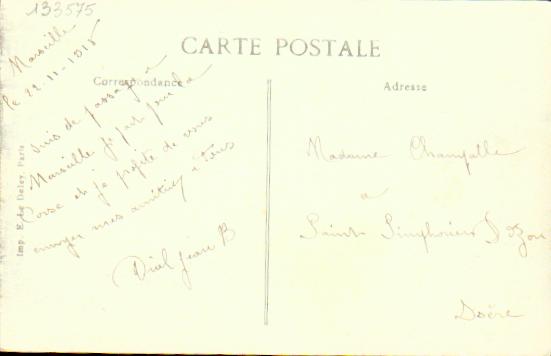 133575
CARTE POSTALE
Correspondance
Adresse
Marseille
le 22-11-1915
suis de passage à
Marseille je part pour la
Corse et je profite de vous
envoyer mes amitiés à tous
Jean B
Imp. E. Le Deley, Paris
Madame Champalle
a
Saint Simphorien D'Ozon
Isère